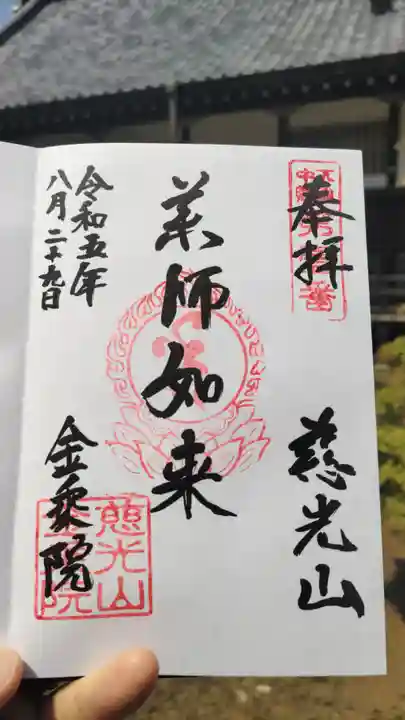 奉拝
慈光山
薬師如来
令和五年
八月二十九日
金乗院
慈光山
金乗院